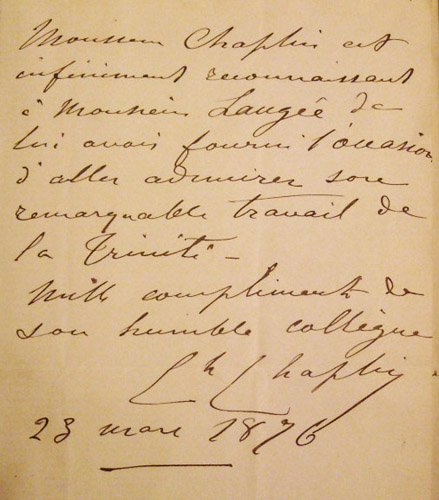 Monsieur Chaplin est
infiniment reconnaissant
à Monsieur Laugée de
lui avoir fourni l'occasion
d'aller admirer son
remarquable travail de
la Trinité –
Mille compliments de
son humble collègue
Ch Chaplin
23 mars 1876